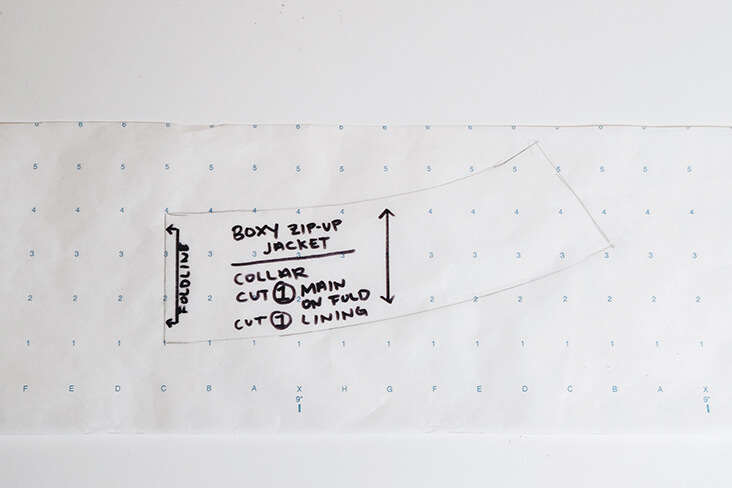 5 5 5 5 5 5 5 5 5 5 5 5 5 5 5 5
4 4 4 4 4 4 4 4 4 4 4 4 4 4 4 4
BOXY ZIP-UP
JACKET
3 3 3 3 3 3 3 3 3 3 3 3 3 3 3 3
FOLDLINE
COLLAR
CUT 1 MAIN
ON FOLD
2 2 2 2 2 2 2 2 2 2 2 2 2 2 2 2
CUT 1 LINING
1 1 1 1 1 1 1 1 1 1 1 1 1 1 1 1
F E D C B A X H G F E D C B A X
9" 9"